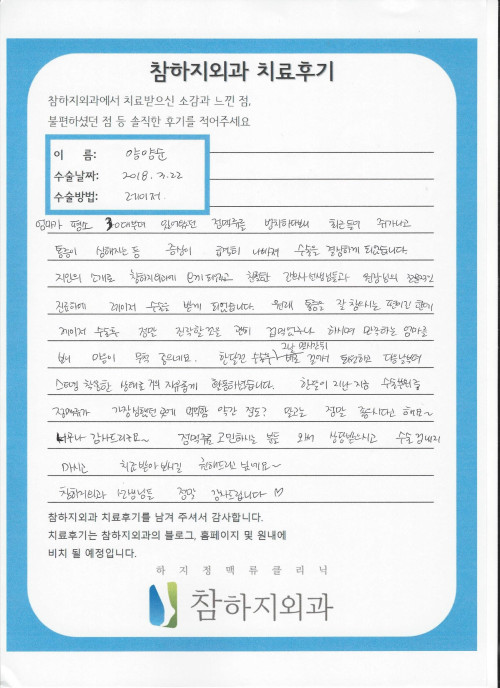 참하지외과 치료후기
참하지외과에서 치료받으신 소감과 느낀 점,
불편하셨던 점 등 솔직한 후기를 적어주세요
이 름: 양양순
수술날짜: 2018. 3. 22
수술방법: 레이저
엄마가 평소 30대부터 있어왔던 정맥류를 방치하다보니 최근들어 쥐가나고
통증이 심해지는 등 증상이 급격히 나빠져 수술을 결심하게 되었습니다.
지인의 소개로 참하지외과에 오게 되었고 친절한 간호사선생님들과 원장님의
진료하에 레이저 수술을 받게 되었습니다. 원래 통증을 잘 참으시는 편이긴 한데
레이저 수술후 정말 진작할 것을 괜히 겁먹었구나 하시며 만족하는 엄마를
보니 마음이 무척 좋으네요. 한달전 수술후 그날 몇시간뒤 바로 걸어서 퇴원하고 다음날부터
스타킹 착용한 상태로 거의 자유롭게 활동하셨습니다. 한달이 지난 지금 수술부위중
정맥류가 가장 심했던 곳에 약간 정도? 말고는 정말 좋으시다고 해요~
너무나 감사드려요~ 정맥류로 고민하시는 분들 와서 상담받으시고 수술 겁내지
마시고 치료받아 보시길 추천해드리고 싶네요~
참하지외과 선생님들 정말 감사드립니다 ♡
참하지외과 치료후기를 남겨 주셔서 감사합니다.
치료후기는 참하지외과의 블로그, 홈페이지 및 원내에
비치 될 예정입니다.
하지정맥류클리닉
참하지외과